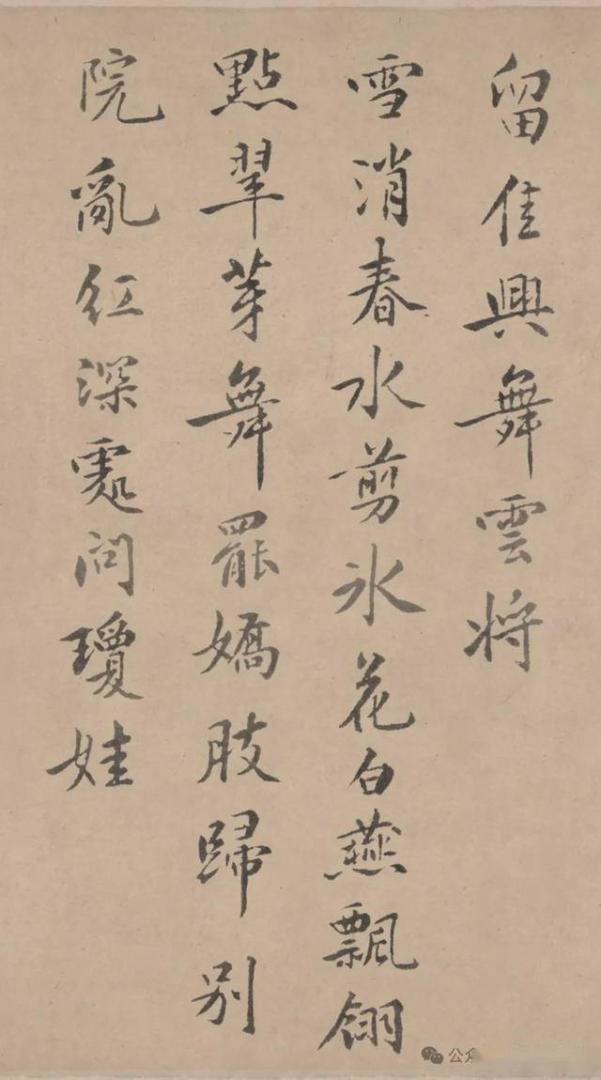 留佳興舞雲將
雪消春水剪氷花白燕飄翎
點翠芽舞罷嬌肢歸別
院亂紅深處問瓊娃
公众